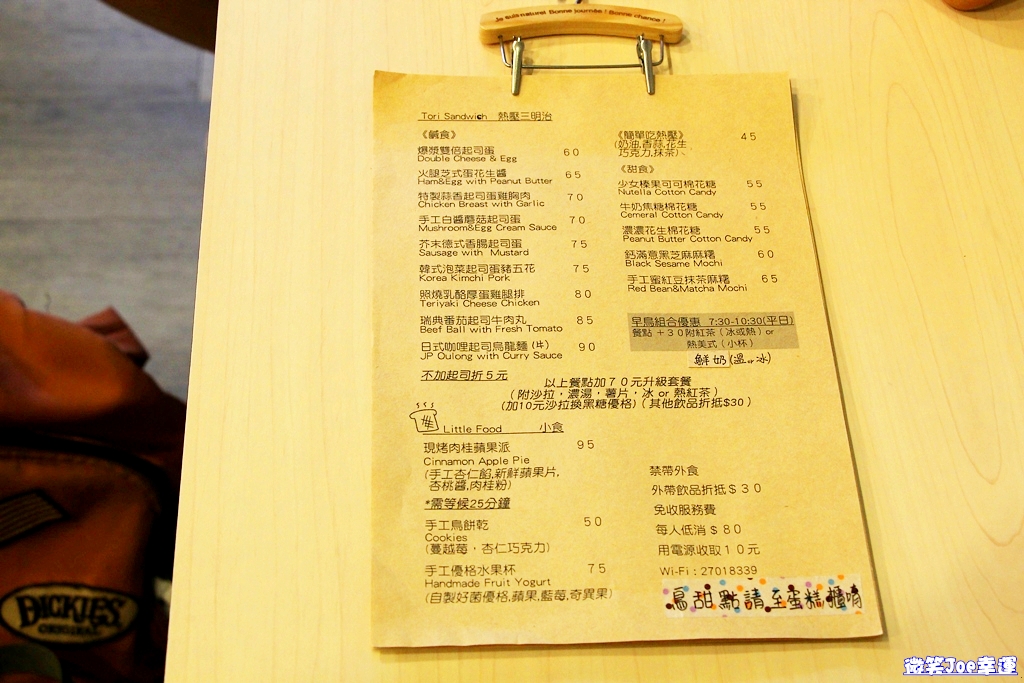 Je suis naturel Bonne journée ! Bonne chance !
Tori Sandwich 熱壓三明治
《鹹食》
爆漿雙倍起司蛋 60
Double Cheese & Egg
火腿芝式蛋花生醬 65
Ham&Egg with Peanut Butter
特製蒜香起司蛋雞胸肉 70
Chicken Breast with Garlic
手工白醬蘑菇起司蛋 70
Mushroom&Egg Cream Sauce
芥末德式香腸起司蛋 75
Sausage with Mustard
韓式泡菜起司蛋豬五花 75
Korea Kimchi Pork
照燒乳酪厚蛋雞腿排 80
Teriyaki Cheese Chicken
瑞典番茄起司牛肉丸 85
Beef Ball with Fresh Tomato
日式咖哩起司烏龍麵(牛) 90
JP Oulong with Curry Sauce
不加起司折5元
《簡單吃熱壓》 45
(奶油,香蒜,花生
巧克力,抹茶)
《甜食》
少女榛果可可棉花糖 55
Nutella Cotton Candy
牛奶焦糖棉花糖 55
Cemeral Cotton Candy
濃濃花生棉花糖 55
Peanut Butter Cotton Candy
鈣滿意黑芝麻麻糬 60
Black Sesame Mochi
手工蜜紅豆抹茶麻糬 65
Red Bean&Matcha Mochi
早鳥組合優惠 7:30-10:30(平日)
餐點+30附紅茶(冰或熱)or
熱美式(小杯)
鮮奶(溫or冰)
以上餐點加70元升級套餐
(附沙拉,濃湯,薯片,冰 or 熱紅茶)
(加10元沙拉換黑糖優格)(其他飲品折抵$30)
Little Food 小食
現烤肉桂蘋果派 95
Cinnamon Apple Pie
(手工杏仁餡,新鮮蘋果片,
杏桃醬,肉桂粉)
*需等候25分鐘
手工鳥餅乾 50
Cookies
(蔓越莓,杏仁巧克力)
手工優格水果杯 75
Handmade Fruit Yogurt
(自製好菌優格,蘋果,藍莓,奇異果)
禁帶外食
外帶飲品折抵$30
免收服務費
每人低消$80
用電源收取10元
Wi-Fi:27018339
鳥甜點請至蛋糕櫃唷
DICKIES
ORIGINAL
微笑Joe幸運